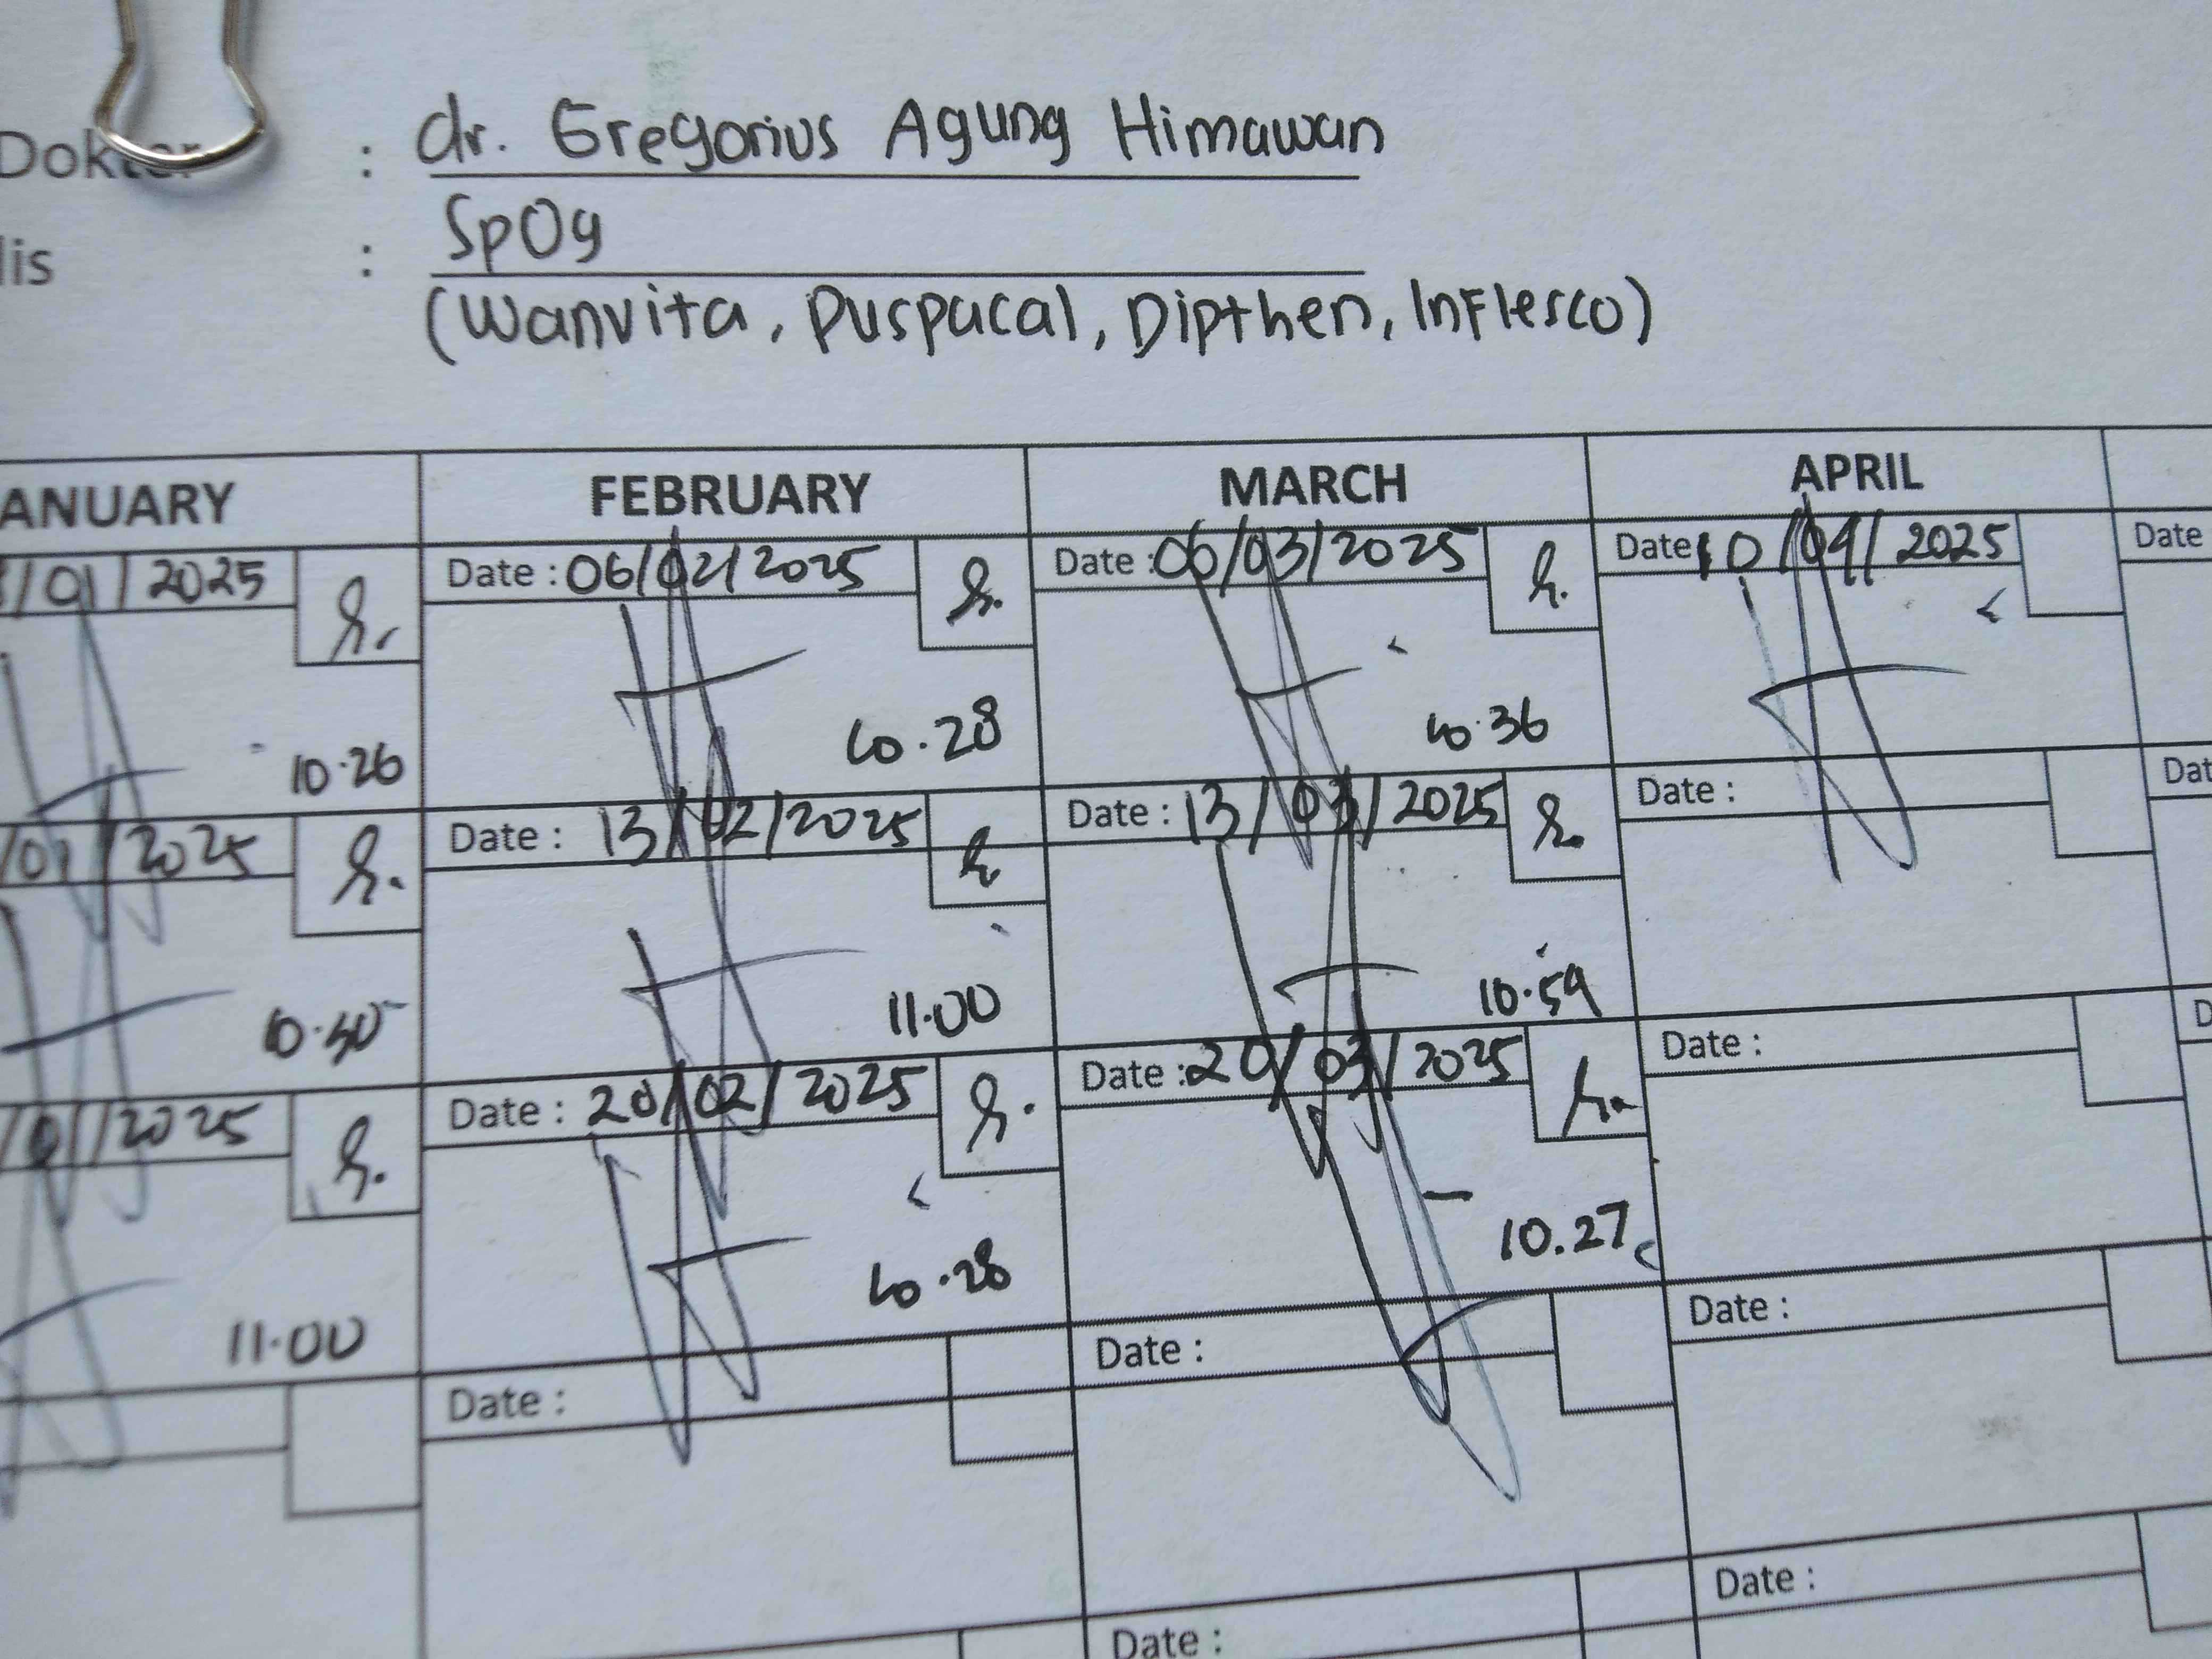 Dokter : dr. Gregorius Agung Himawan
lis : SpOg
(Wanvita, Puspacal, Dipthen, Inflesco)
ANUARY FEBRUARY MARCH APRIL
/01/2025 Date : 06/02/2025 Date : 06/03/2025 Date 10/04/2025 Date
10.26 10.28 10.36
/01/2025 Date : 13/02/2025 Date : 13/03/2025 Date : Dat
11.00 10.59
/01/2025 Date : 20/02/2025 Date : 20/03/2025 Date : D
11.00 10.28 10.27
Date : Date : Date :
Date : Date :